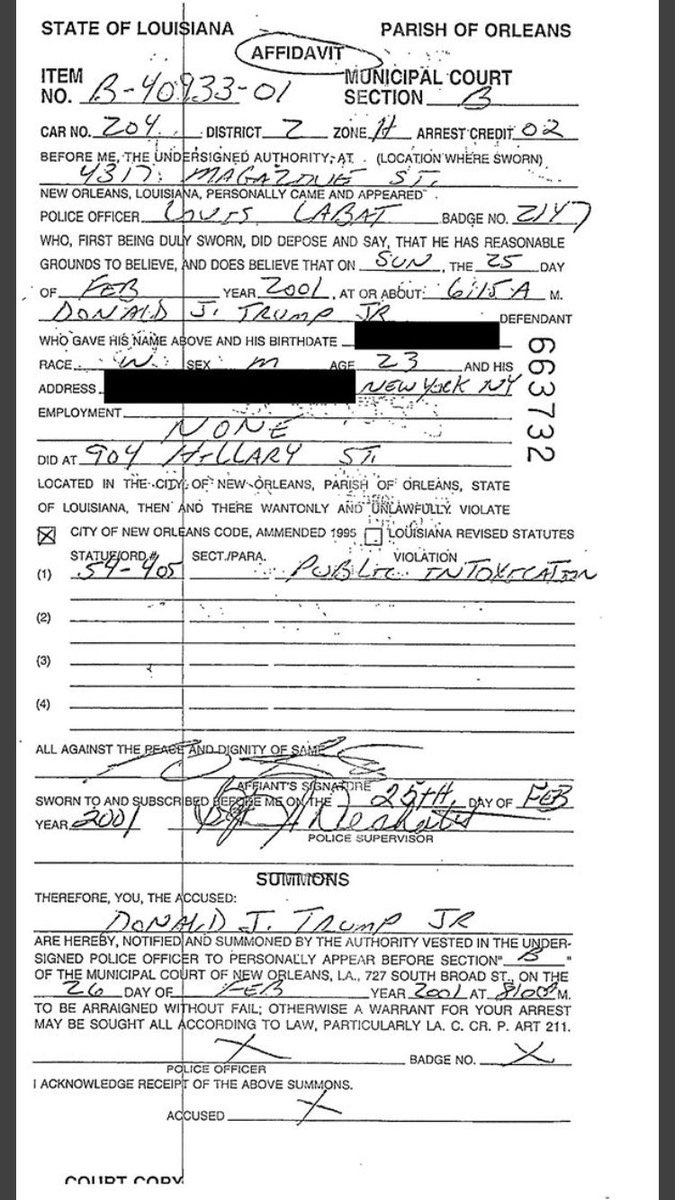 STATE OF LOUISIANA PARISH OF ORLEANS
AFFIDAVIT
ITEM MUNICIPAL COURT
NO. B-40933-01 SECTION B
CAR NO. 204 DISTRICT 2 ZONE H ARREST CREDIT 02
BEFORE ME, THE UNDERSIGNED AUTHORITY, AT (LOCATION WHERE SWORN)
4317 MAGAZINE ST.
NEW ORLEANS, LOUISIANA, PERSONALLY CAME AND APPEARED
POLICE OFFICER LOUIS LABAT BADGE NO. 2147
WHO, FIRST BEING DULY SWORN, DID DEPOSE AND SAY, THAT HE HAS REASONABLE
GROUNDS TO BELIEVE, AND DOES BELIEVE THAT ON SUN, THE 25 DAY
OF FEB YEAR 2001, AT OR ABOUT 6:15 A M.
DONALD J. TRUMP JR DEFENDANT
WHO GAVE HIS NAME ABOVE AND HIS BIRTHDATE
RACE W SEX M AGE 23 AND HIS
ADDRESS NEW YORK NY
663732
EMPLOYMENT
NONE
DID AT 904 HILLARY ST.
LOCATED IN THE CITY OF NEW ORLEANS, PARISH OF ORLEANS, STATE
OF LOUISIANA, THEN AND THERE WANTONLY AND UNLAWFULLY VIOLATE
CITY OF NEW ORLEANS CODE, AMMENDED 1995 LOUISIANA REVISED STATUTES
STATUE/ORD.# SECT./PARA. VIOLATION
(1) 54-405 PUBLIC INTOXICATION
(2)
(3)
(4)
ALL AGAINST THE PEACE AND DIGNITY OF SAME
AFFIANT'S SIGNATURE
SWORN TO AND SUBSCRIBED BEFORE ME ON THE 25TH DAY OF FEB
YEAR 2001
POLICE SUPERVISOR
SUMMONS
THEREFORE, YOU, THE ACCUSED:
DONALD J. TRUMP JR
ARE HEREBY, NOTIFIED AND SUMMONED BY THE AUTHORITY VESTED IN THE UNDER-
SIGNED POLICE OFFICER TO PERSONALLY APPEAR BEFORE SECTION "B"
OF THE MUNICIPAL COURT OF NEW ORLEANS, LA., 727 SOUTH BROAD ST., ON THE
26 DAY OF FEB YEAR 2001 AT M.
TO BE ARRAIGNED WITHOUT FAIL; OTHERWISE A WARRANT FOR YOUR ARREST
MAY BE SOUGHT ALL ACCORDING TO LAW, PARTICULARLY LA. C. CR. P. ART 211.
X BADGE NO. X
POLICE OFFICER
I ACKNOWLEDGE RECEIPT OF THE ABOVE SUMMONS.
ACCUSED X
COURT COPY